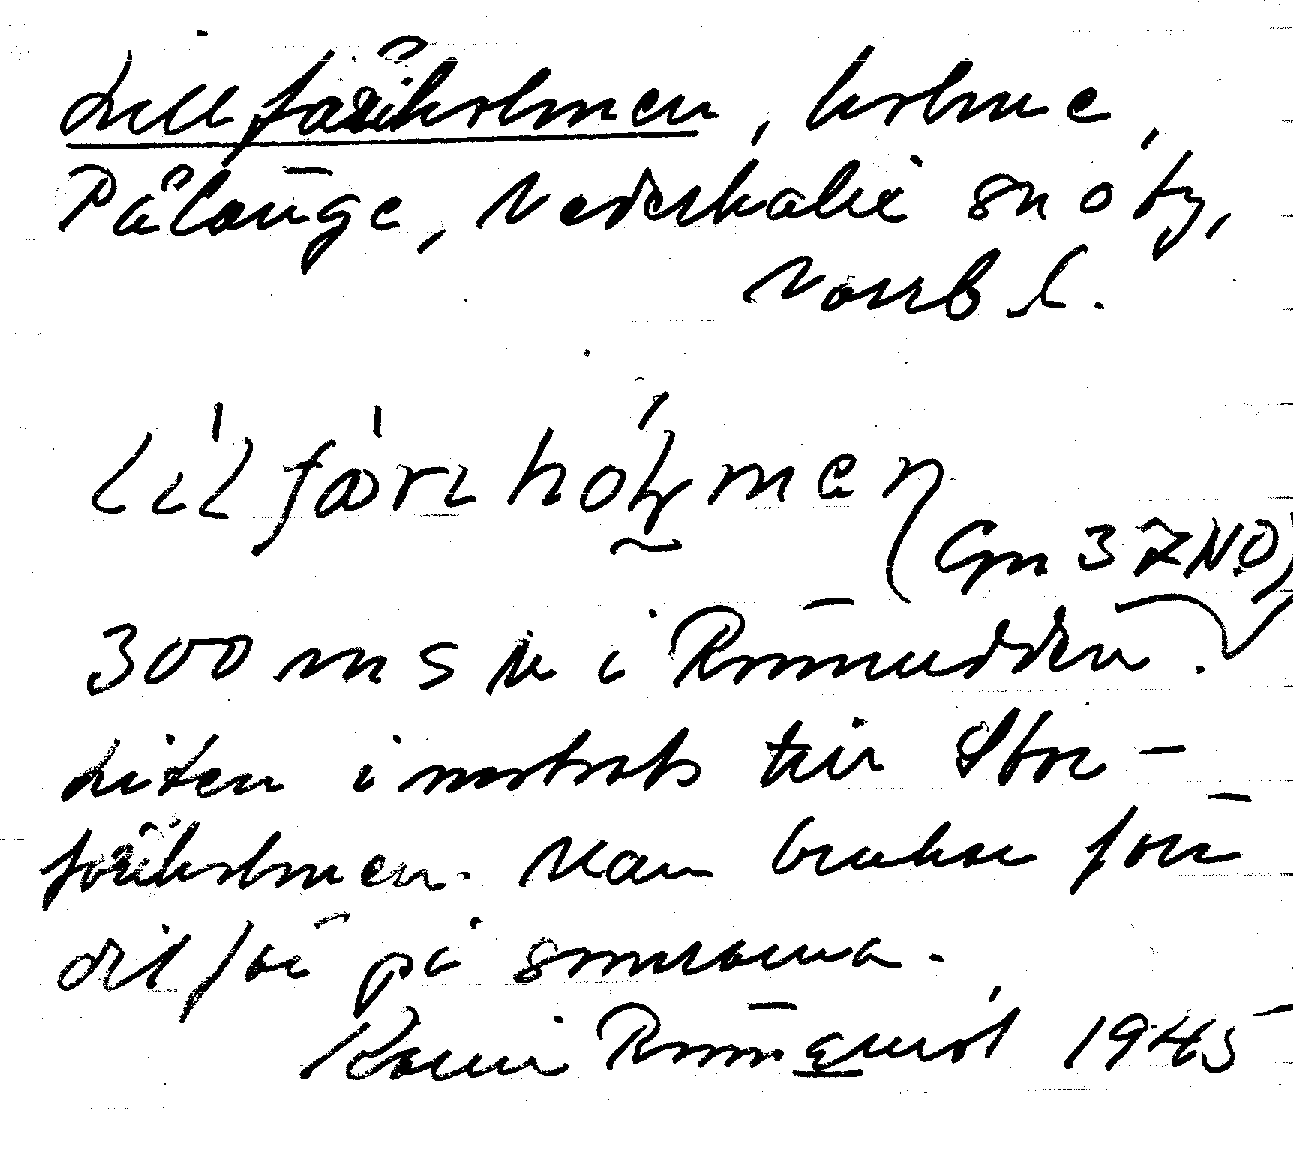 Lillfårholmen, holme,
Pålänge, Nederkalix sn o ty,
Norrb l.
lìl fårhólmen
(Gpn 37NO)
300 m s v i Rönnudden.
Liten i motsats till Stor-
fårholmen. Man brukar föra
dit får på somrarna.
Karin Rönnqvist 1945